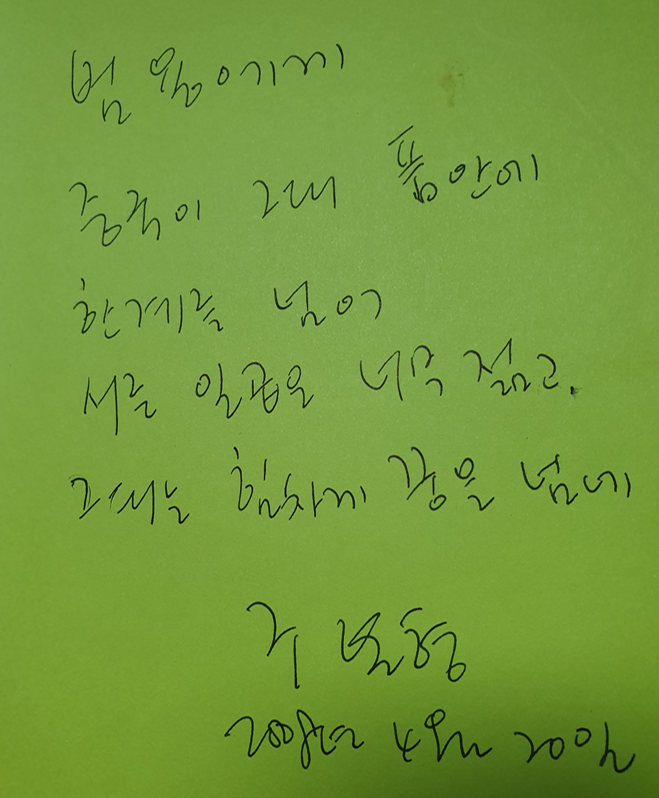 범 왕에게
중국이 그대 품안에
한계를 넘어
서른 일곱은 너무 젊고.
그대는 힘차게 강을 넘네
구 본형
2008년 4월 20일